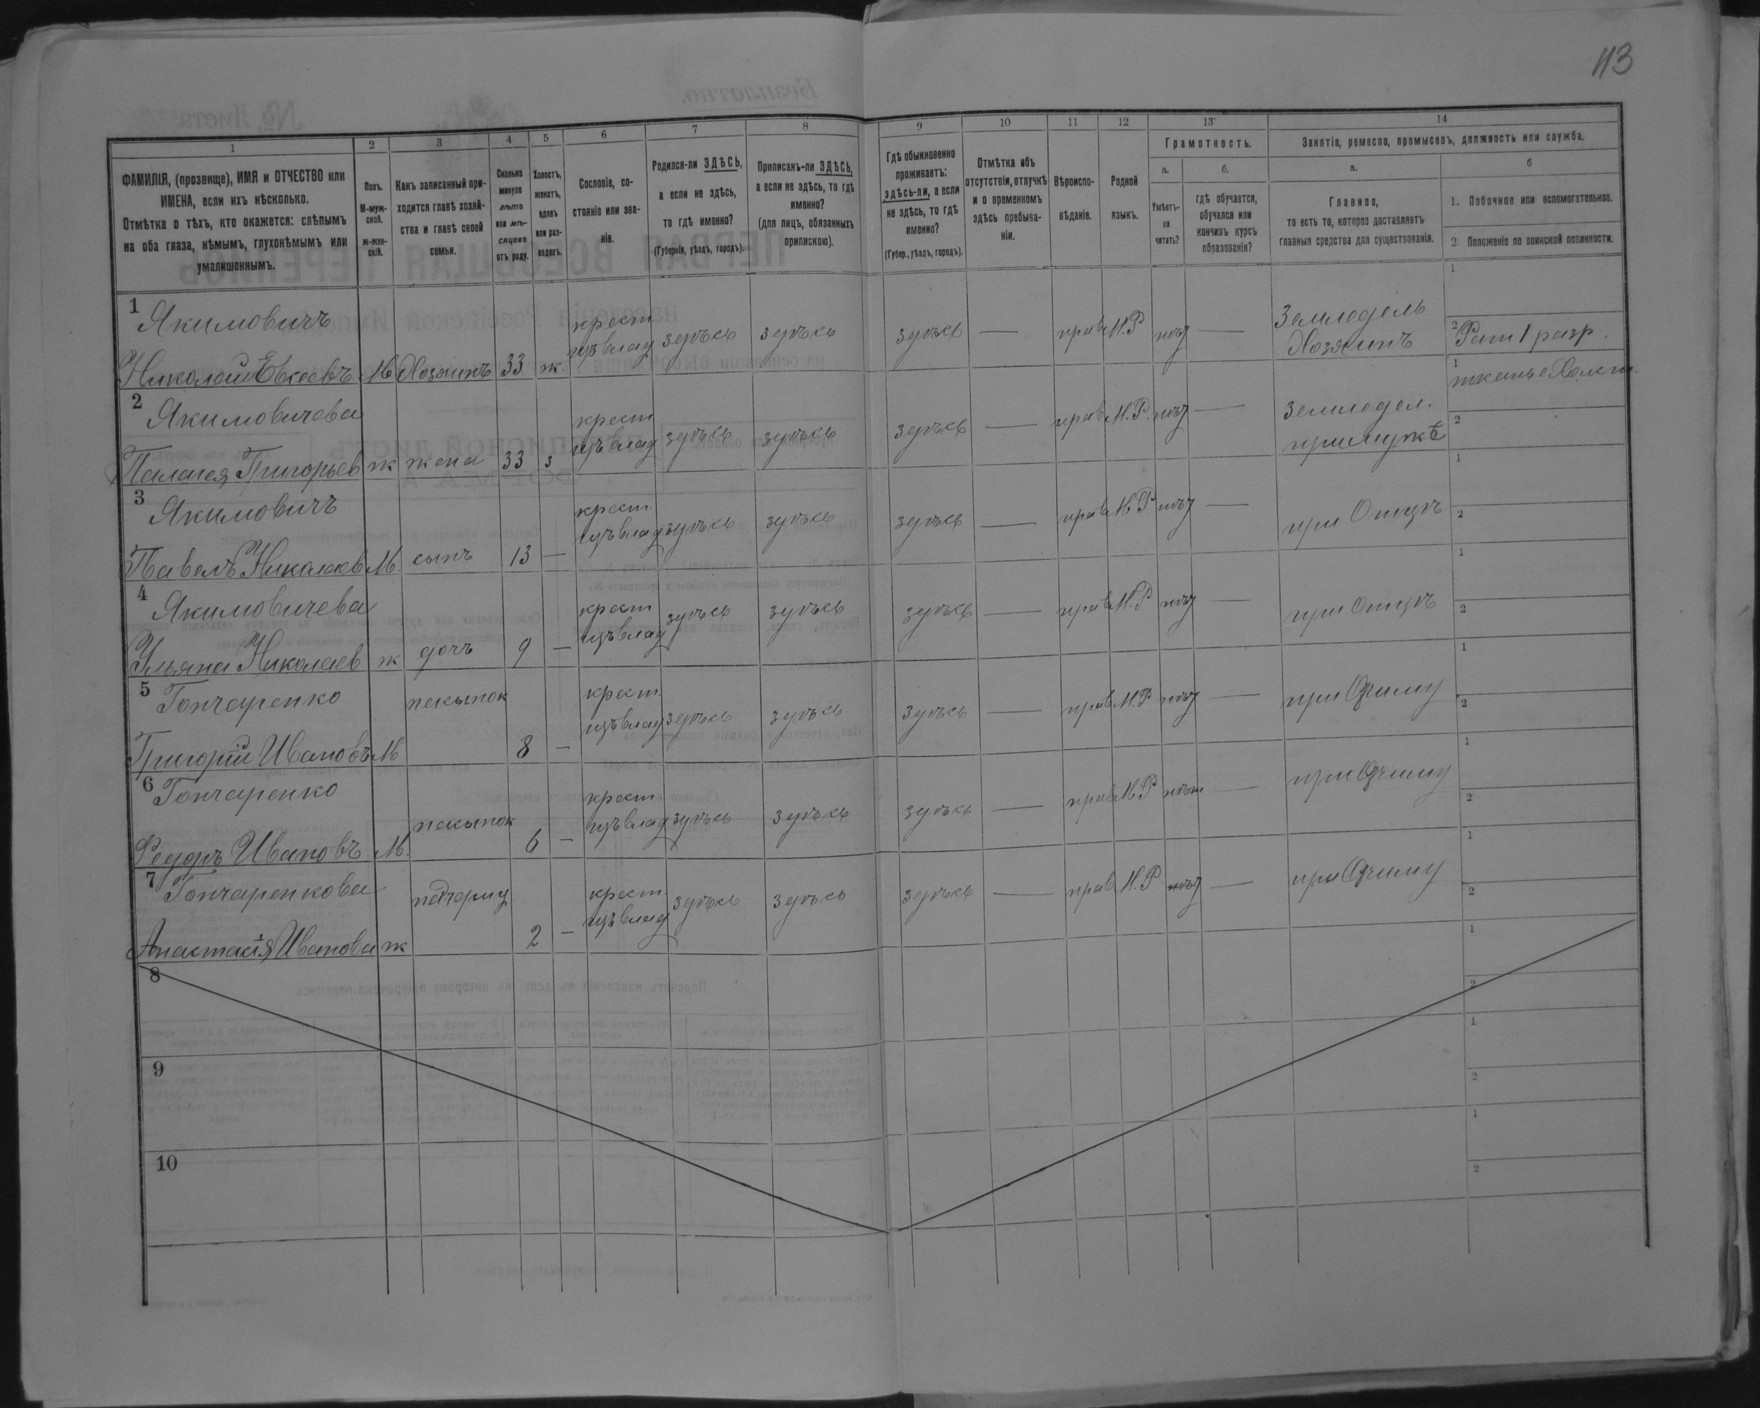 113
1 2 3 4 5 6 7 8 9 10 11 12 13 14
ФАМИЛІЯ, (прозвище), ИМЯ и ОТЧЕСТВО или ИМЕНА, если ихъ нѣсколько.
Отмѣтка о тѣхъ, кто окажется: слѣпымъ на оба глаза, нѣмымъ, глухонѣмымъ или умалишеннымъ.
Полъ. М-мужской. ж-женскій.
Какъ записанный приходится главѣ хозяйства и главѣ своей семьи.
Сколько минуло лѣтъ или мѣсяцевъ отъ роду.
Холостъ, женатъ, вдовъ или разведенъ.
Сословіе, состояніе или званіе.
Родился-ли ЗДѢСЬ, а если не здѣсь, то гдѣ именно? (Губернія, уѣздъ, городъ).
Приписанъ-ли ЗДѢСЬ, а если не здѣсь, то гдѣ именно? (для лицъ, обязанныхъ припискою).
Гдѣ обыкновенно проживаетъ: здѣсь-ли, а если не здѣсь, то гдѣ именно? (Губер., уѣздъ, городъ).
Отмѣтка объ отсутствіи, отлучкѣ и о временномъ здѣсь пребываніи.
Вѣроисповѣданіе.
Родной языкъ.
Грамотность.
а. Умѣетъ-ли читать?
б. гдѣ обучается, обучался или кончилъ курсъ образованія?
Занятіе, ремесло, промыселъ, должность или служба.
а. Главное, то есть то, которое доставляетъ главныя средства для существованія.
б
1. Побочное или вспомогательное.
2. Положеніе по воинской повинности.
1 Якимовичъ крест здѣсь здѣсь здѣсь — прав М.Р нѣт — Земледѣль 1
Николай Евсеевъ М Хозяинъ 33 ж. Хозяинъ 2 Рат 1 разр.
2 Якимовичева крест здѣсь здѣсь здѣсь — прав М.Р. нѣт — земледел. 1 тканье Холст.
Палагея Григорьев ж жена 33 з при мужѣ 2
3 Якимовичъ крест здѣсь здѣсь здѣсь — прав М.Р нѣт — при Отцѣ 1
Павелъ Николаев М. сынъ 13 — 2
4 Якимовичева крест здѣсь здѣсь здѣсь — прав М.Р нѣт — при Отцѣ 1
Ульяна Николаев ж дочь 9 — 2
5 Гончаренко пасынок крест здѣсь здѣсь здѣсь — прав М.Р нѣт — при Отчиму 1
Григорій Ивановъ М 8 — 2
6 Гончаренко пасынок крест здѣсь здѣсь здѣсь — прав М.Р нѣт — при Отчиму 1
Федоръ Ивановъ М. 6 — 2
7 Гончаренкова падчериц крест здѣсь здѣсь здѣсь — прав М.Р нѣт — при Отчиму 1
Анастасія Иванова ж 2 — 2
8 1
2
9 1
2
10 1
2